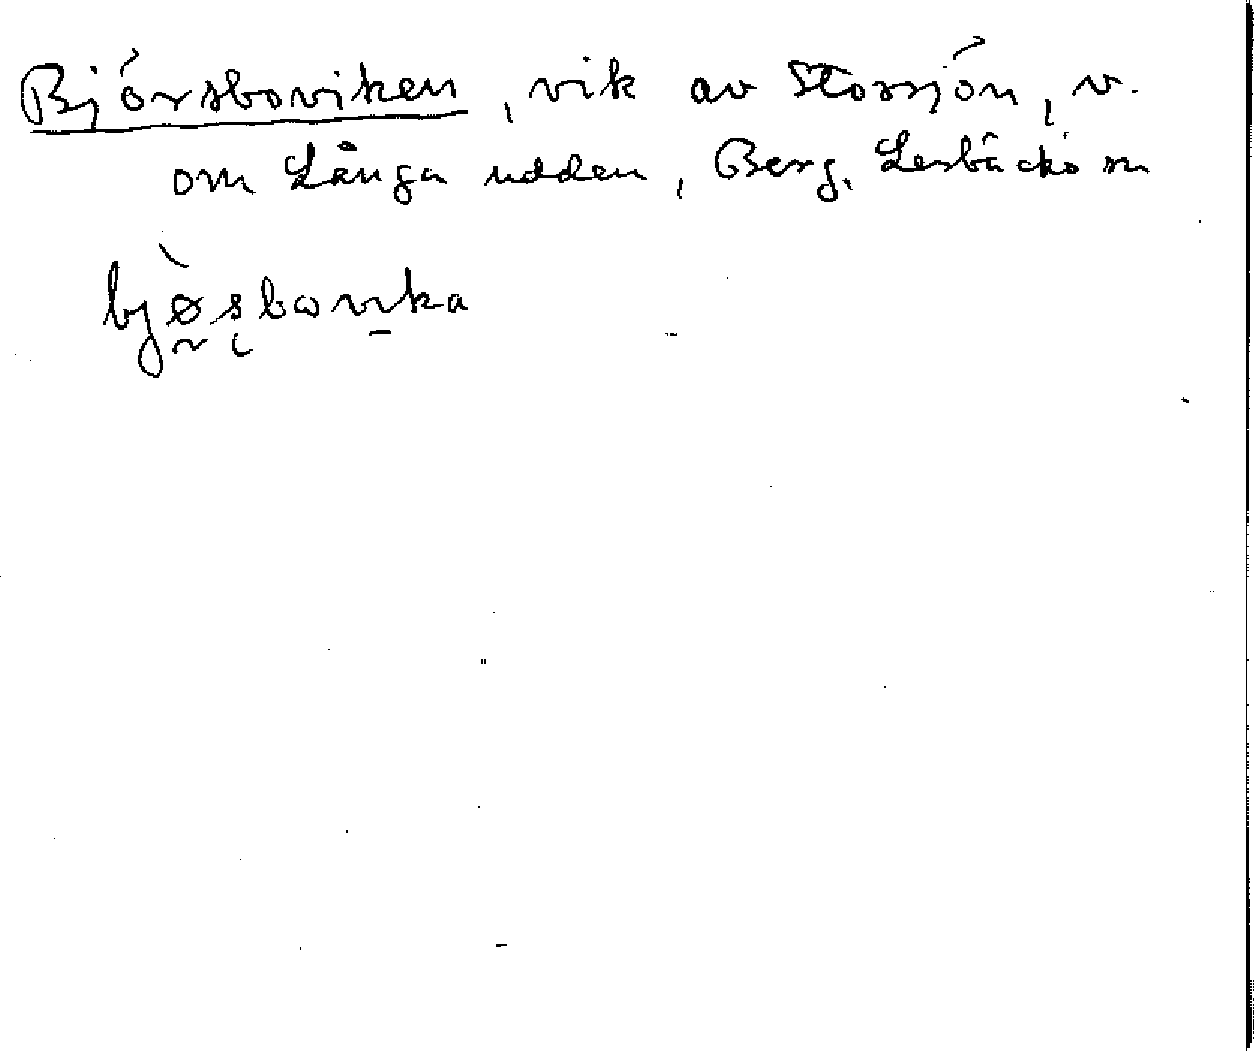 Björsboviken, vik av Storsjön, v.
om Långa udden, Berg, Lesbäckö sn
bjø̀sbovika